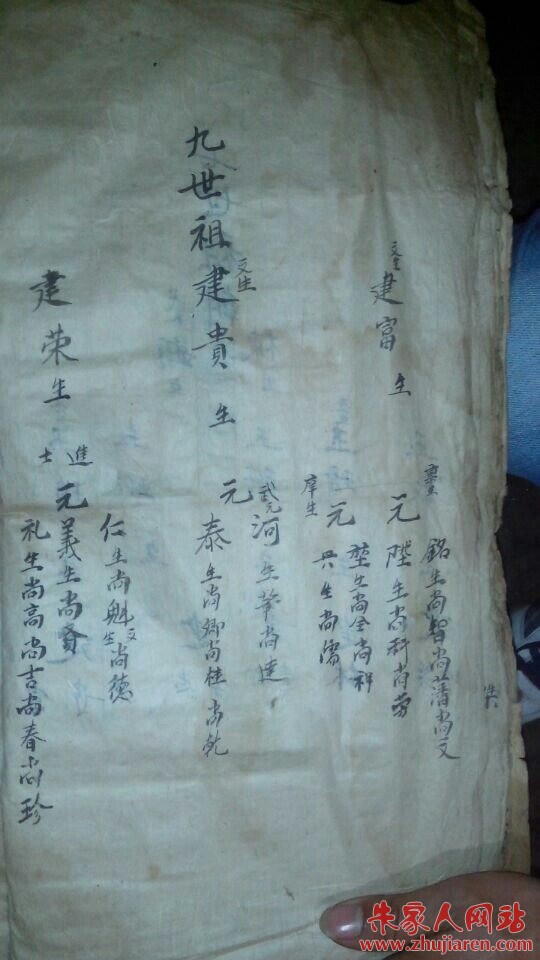 廪生
銘生尚智尚藩尚文
元陛生尚科尚勞
文生
建富生
堃生尚全尚科
元
庠生
兴生尚儒
九世祖建貴生
文生
武元
河生華尚達
元
泰生尚卿尚桂尚乾
建荣生
進士
仁生尚魁尚德
文生
元義生尚賓
礼生尚高尚吉尚春尚珍
朱家人网站
www.zhujiaren.com